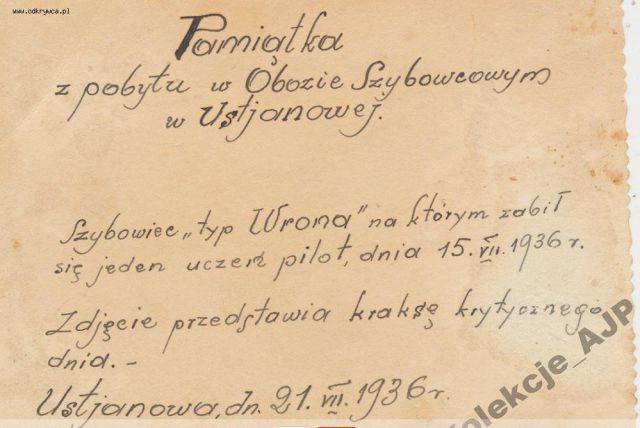 www.odkrywca.pl
Pamiątka
z pobytu w Obozie Szybowcowym
w Ustjanowej.
Szybowiec „typ Wrona" na którym zabił
się jeden uczeń pilot, dnia 15.VII.1936 r.
Zdjęcie przedstawia kraksę krytycznego
dnia.-
Ustjanowa, dn. 21.VII.1936 r.
Kolekcje_AJP